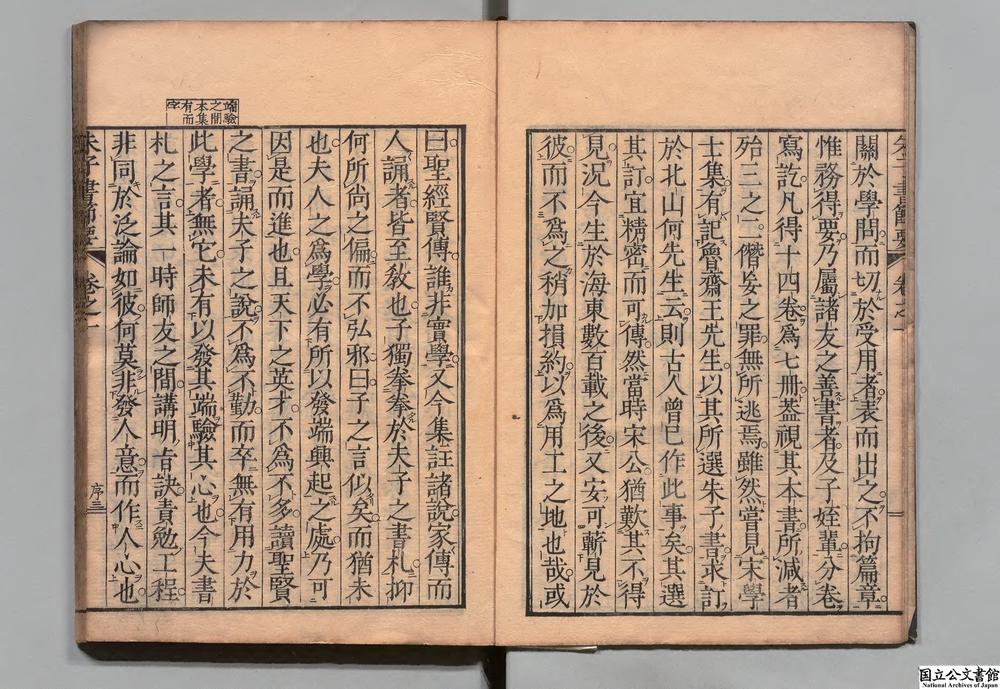 關於學問而切於受用者表而出之不拘篇章
惟務得要乃屬諸友之善書者及子姪輩分卷
寫訖凡得十四卷爲七册蓋視其本書所減者
殆三之二僭妄之罪無所逃焉雖然嘗見宋學
士集有記魯齋王先生以其所選朱子書求訂
於北山何先生云則古人曾已作此事矣其選
其訂宜精密而可傳然當時宋公猶歎其不得
見況今生於海東數百載之後又安可蘄見於
彼而不爲之稍加損約以爲用工之地也哉或
朱子書節要 卷之一
曰聖經賢傳誰非實學又今集註諸說家傳而
人誦者皆至敎也子獨拳拳於夫子之書札抑
何所尙之偏而不弘邪曰子之言似矣而猶未
也夫人之爲學必有所以發端興起之處乃可
因是而進也且天下之英才不爲不多讀聖賢
之書誦夫子之說不爲不勤而卒無有用力於
此學者無它未有以發其端驗其心也今夫書
札之言其一時師友之間講明旨訣責勉工程
非同於泛論如彼何莫非發人意而作人心也
朱子書節要 卷之一 序三
端驗
之間
本集
有而
字
国立公文書館
National Archives of Japan